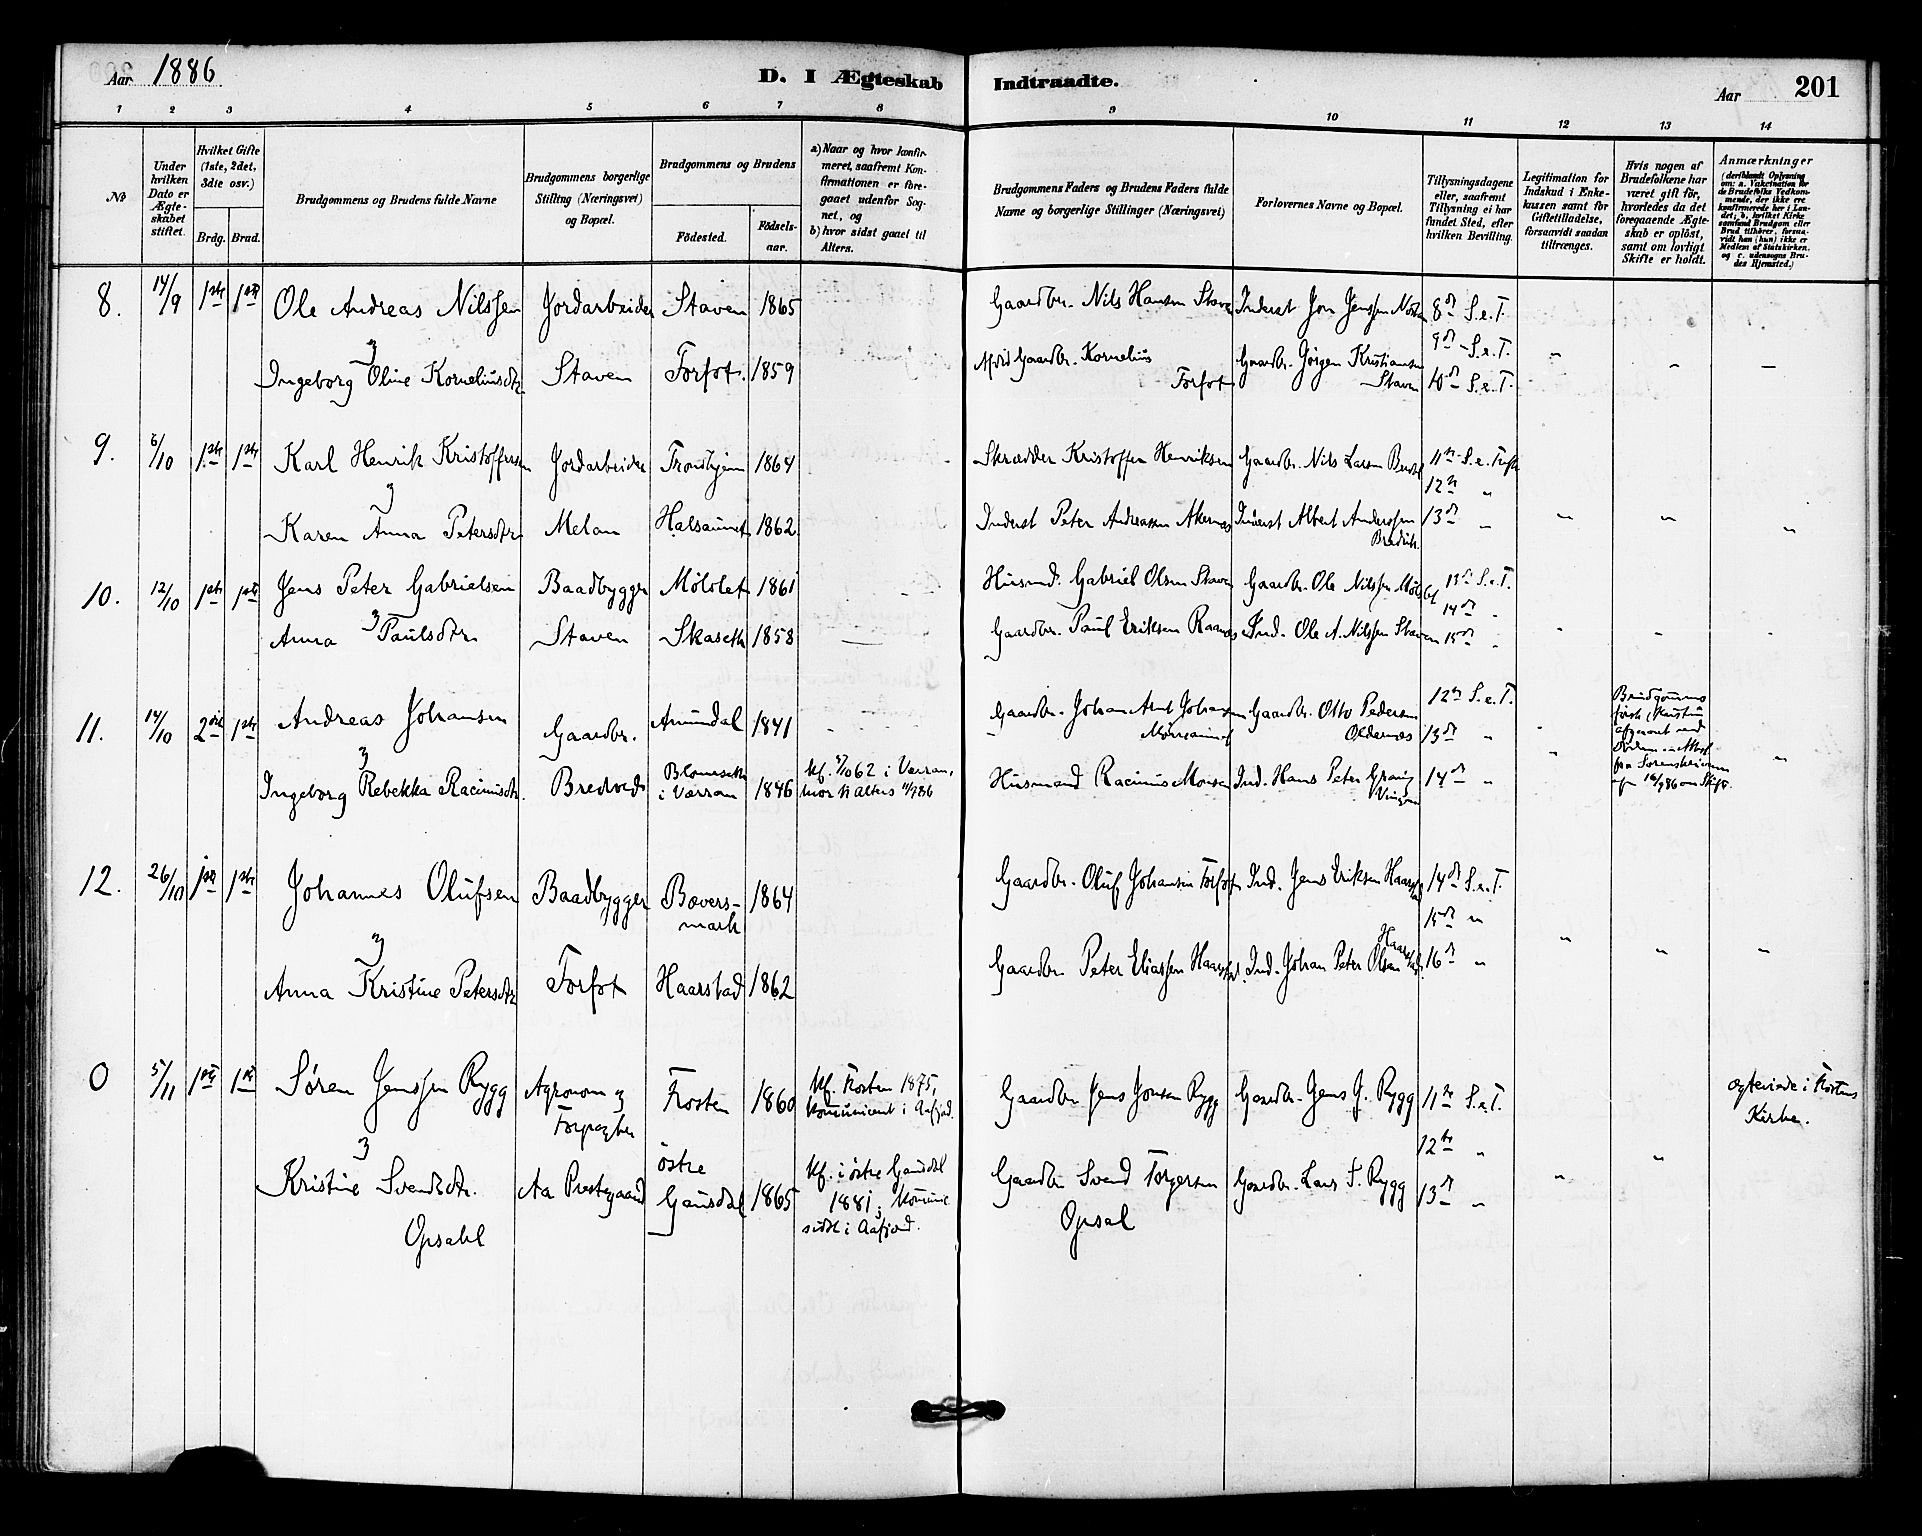 Aar 1886
D. I Ægteskab Indtraadte.
Aar 201
1 2 3 4 5 6 7 8 9 10 11 12 13 14
No
Under hvilken Dato er Ægteskabet stiftet.
Hvilket Gifte (1ste, 2det, 3die osv.)
Brdg. Brud.
Brudgommens og Brudens fulde Navne
Brudgommens borgerlige Stilling (Næringsvei) og Bopæl.
Brudgommens og Brudens
Födested. Födselsaar.
a) Naar og hvor konfirmeret, saafremt Konfirmationen er foregaaet udenfor Sognet, og
b) hvor sidst gaael til Alters.
Brudgommens Faders og Brudens Faders fulde Navne og borgerlige Stillinger (Næringsvei)
Forlovernes Navne og Bopæl.
Tillysningsdagene eller, saafremt Tillysning ei har fundet Sted, efter hvilken Bevilling.
Legitimation for Indskud i Enkekassen samt for Giftetilladelse, forsaavidt saadan tiltrænges.
Hvis nogen af Brudefolkene har været gift för, hvorledes da det foregaaende Ægteskab er oplöst, samt om lovligt Skifte er holdt.
Anmærkninger (deriblandt Oplysning om: a. Vakcination for de Brudefolks Vedkommende, der ikke ere konfirmerede her i Landet; b. hvilket Kirkesamfund Brudgom eller Brud tilhörer, forsaavidt han (hun) ikke er Medlem af Statskirken, og c. udensogns Brudes Hjemsted.)
8. 14/9 1ste 1ste Ole Andreas Nilssen Jordarbeider Staven 1865 Gaardbr. Nils Hansen Stave Inderst Jon Jenssen 8de S.e.T.
9de S.e.T.
Ingeborg Oline Korneliusdtr Staven Forfot. 1859 Gaardbr. Kornelius Forfot Gaardbr. Jörgen Kristiansen Staven 10de S.e.T.
9. 6/10 1ste 1ste Karl Henrik Kristoffersen Jordarbeider Trondhjem 1864 Skrædder Kristoffer Henriksen Gaardbr. Nils Larsen 11te S.e.
12te "
Karen Anna Petersdtr Melan Halsaunet 1862 Inderst Peter Andreassen Inderst Albert Anderssen 13de "
10. 12/10 1ste 1ste Jens Peter Gabrielsen Baadbygger Mölslet 1861 Husmd. Gabriel Olsen Staven Gaardbr. Ole Nilssen 13de S.e.T.
14de "
Anna Paulsdtr Staven Skaseth 1858 Gaardbr. Paul Eriksen Ind. Ole A. Nilssen Staven 15de "
11. 14/10 2det 1ste Andreas Johansen Gaardbr. Amundal 1841 Gaardbr. Johan Arnt Johansen Gaardbr. Otto Pedersen Oldernæs 12te S.e.T.
13de "
Ingeborg Rebekka Racinusdtr. Bredvold i Værran 1846 kf. 62 i Værran, Husmand Racinus Monsen Ind. Hans Peter 14de "
12. 26/10 1ste 1ste Johannes Olufsen Baadbygger Bæversmark 1864 Gaardbr. Oluf Johansen Forfot Ind. Jens Eriksen Haarstad 14de S.e.T.
15de "
Anna Kristine Petersdtr Forfot Haarstad 1862 Gaardbr Peter Eliassen Haarstad. Ind. Johan Peter Olsen Haarstad 16de "
0 5/11 1ste 1ste Sören Jenssen Rygg Agronom og Forpagter Frosten 1860 kf. Frosten 1875, kommunicert i Aafjord. Gaardbr Jens Jonsen Rygg Gaardbr. Jens J. Rygg 11te S.e.T.
ægteviede i Frostens Kirke.
12te "
Kristine Svendsdtr. Opsahl Aa Prestegaard östre Gausdal 1865 kf. i östre Gausdal 1881; kommun. sidst i Aafjord. Gaardbr Svend Torgersen Opsal Gaardbr. Lars S. Rygg 13de "